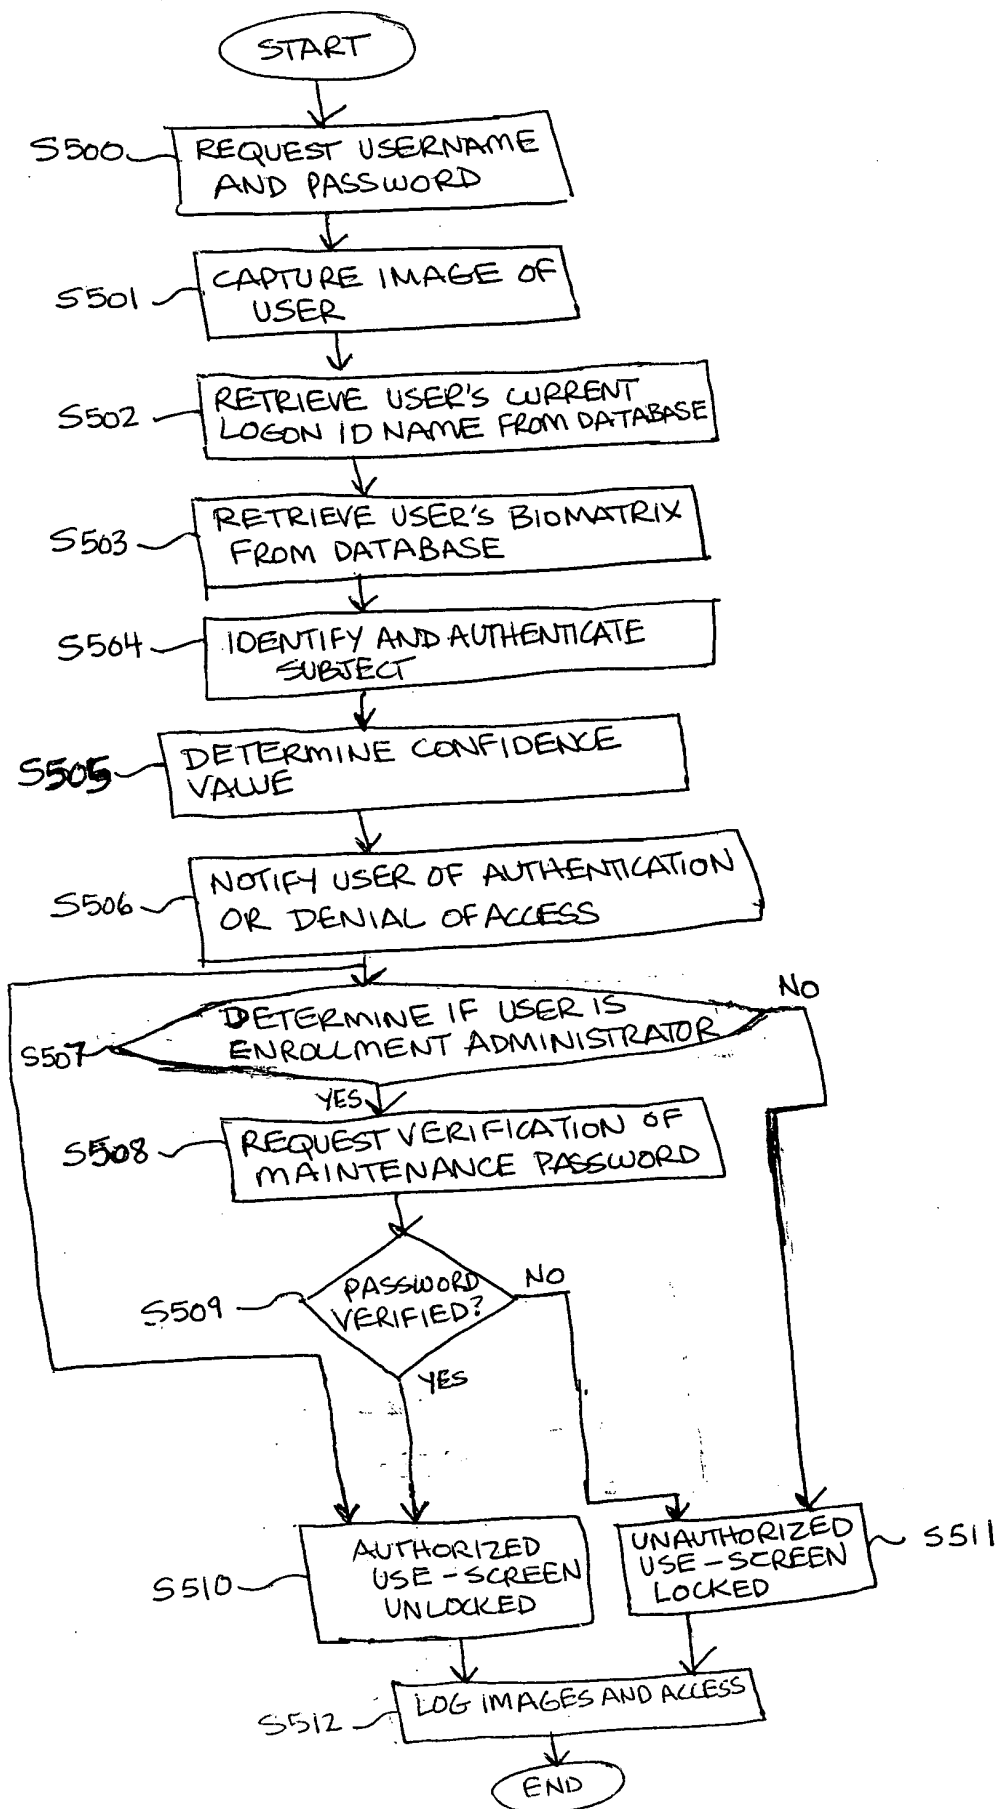 START
S500
REQUEST USERNAME
AND PASSWORD
S501
CAPTURE IMAGE OF
USER
S502
RETRIEVE USER'S CURRENT
LOGON ID NAME FROM DATABASE
S503
RETRIEVE USER'S BIOMATRIX
FROM DATABASE
S504
IDENTIFY AND AUTHENTICATE
SUBJECT
S505
DETERMINE CONFIDENCE
VALUE
S506
NOTIFY USER OF AUTHENTICATION
OR DENIAL OF ACCESS
NO
S507
DETERMINE IF USER IS
ENROLLMENT ADMINISTRATOR
YES
S508
REQUEST VERIFICATION OF
MAINTENANCE PASSWORD
S509
PASSWORD
VERIFIED?
NO
YES
S510
AUTHORIZED
USE-SCREEN
UNLOCKED
UNAUTHORIZED
USE-SCREEN
LOCKED
S511
S512
LOG IMAGES AND ACCESS
END